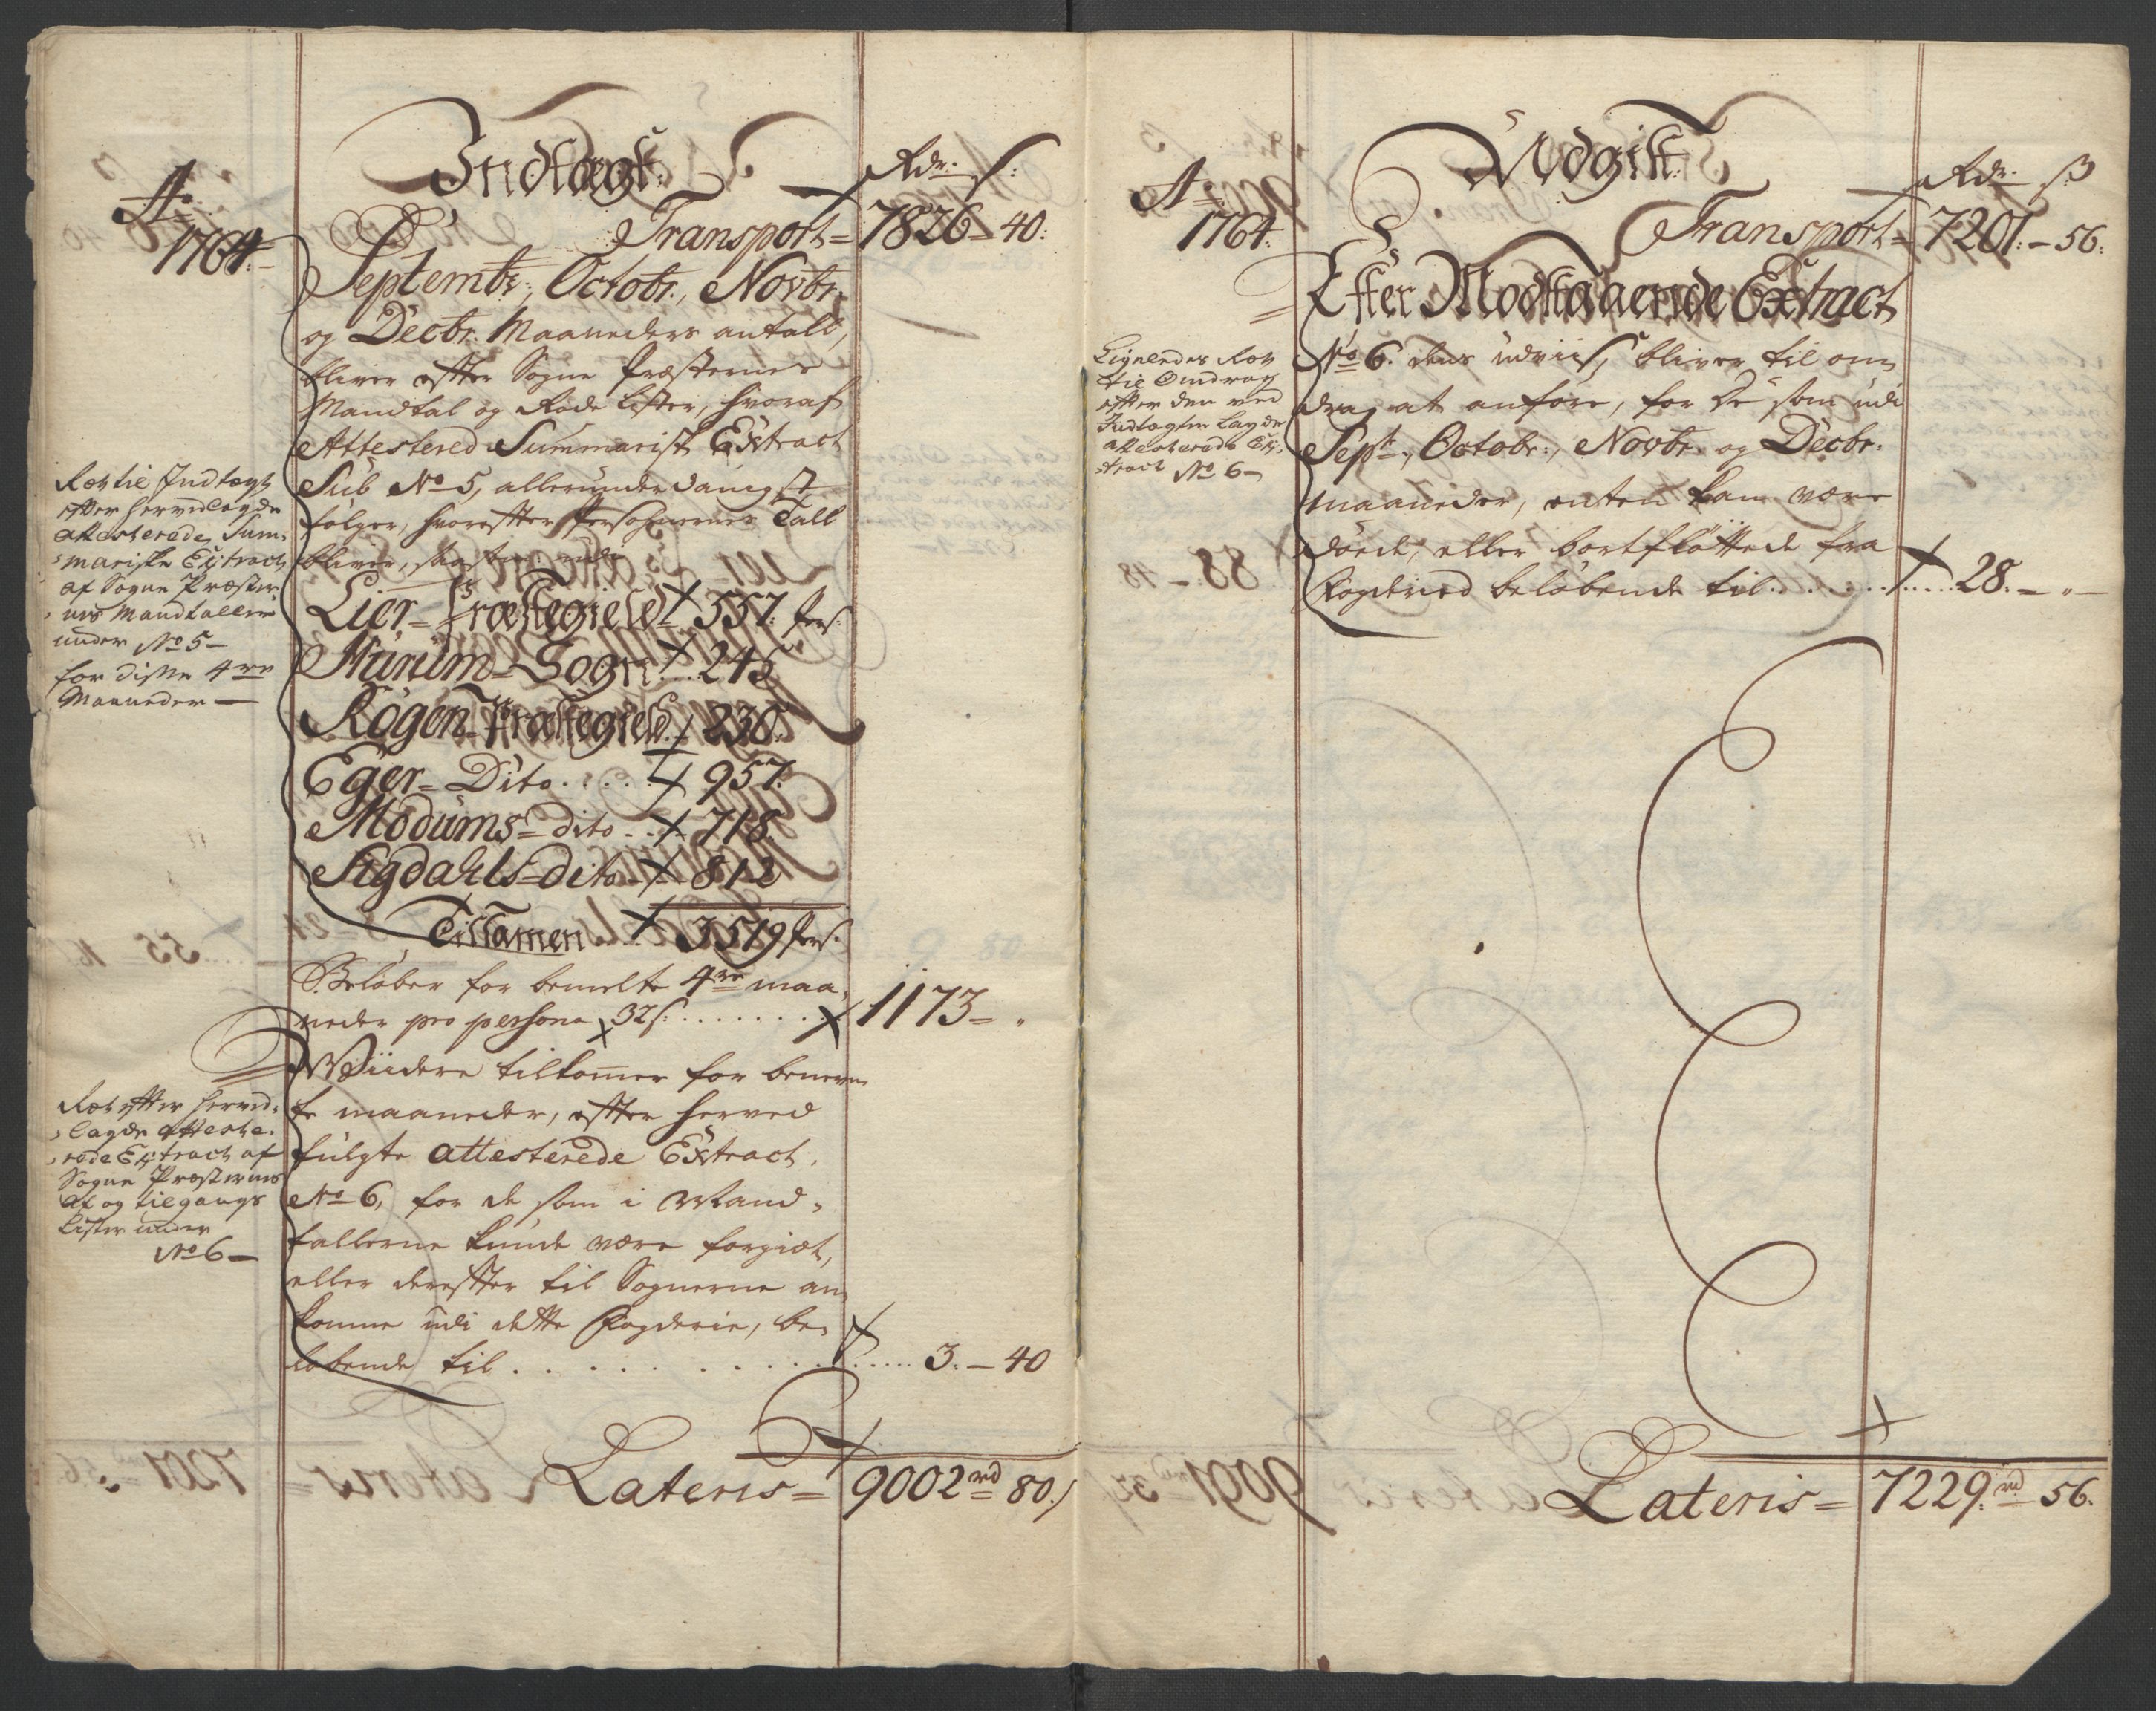 Indtægt.
Rdr. s:
Ao
1764.
Transport = 7826 - 40:
Septembr:, Octobr., Novbr.
og Decbr. Maaneders antall,
bliver effter Sogne Præsternes
Mandtal og Rode Lister, hvoraf
Attestered Summarisk Extract
Sub No 5, allerunderdanigst
følger, hvoreffter Persohnernes Tall
bliver,
Lier - Præstegield 557. Pers.
Hurum - Sogn 245
Røgen - Præstegield 230.
Eger - Dito 957.
Modums - dito 718.
Sigdahls - dito 812
Tilsamen 3519 Pers.
Beløber for bemelte 4re maa,
neder pro persona 32 s: 1173 - "
Wiidere tilkomer for benevn
te maaneder, effter herved
fulgte attesterede Extract,
No 6, for de som i Mand,
tallerne kunde være forgiæt,
eller dereffter til Sognerne an,
komne udi dette Fogderie, be,
løbende til 3. - 40
Lateris = 9002 rd 80 s
Rettie Indtægt
effter herved lagde
attesterede Sum,
mariske Extract
af Sogne Præster,
nes Mandtaller
under No 5 -
for disse 4re
Maaneder -
Ret effter herved,
lagde atteste,
rede Extract af
Sogne Præsternes
Af og tilgangs
Lister under
No 6 -
Udgift
Rdr. s
Ao
1764.
Transport = 7201. - 56.
Efter Modstaaende Extract
No 6. dens udviis, bliver til om,
drag at anføre, for De som udi
Septr., Octobr., Novbr. og Decbr.
maaneder, enten kan være
døde, eller bortfløttede fra
Fogderied beløbende til 28. - " -
Lignedes Ret
til
effter den ved
Indtægten Lagde
attesterede Ex,
tract No 6 -
Lateris = 7229. rd 56.